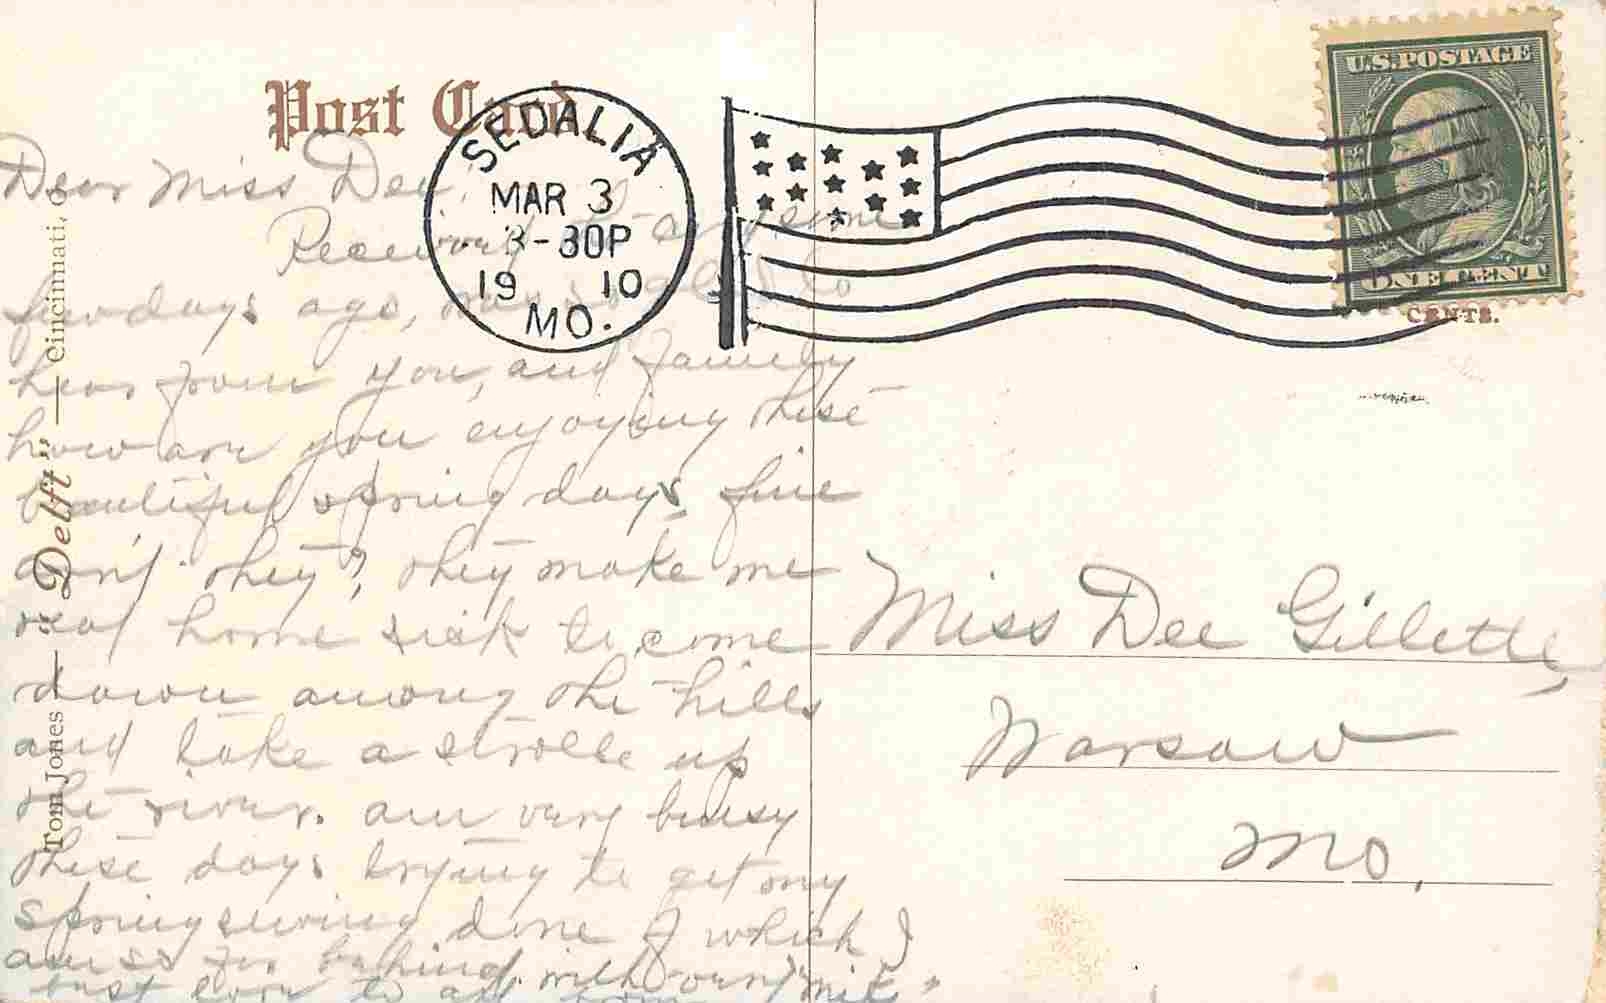 Post Card
SEDALIA
MAR 3
3-30P
1910
MO.
U.S. POSTAGE
ONE CENT
CENTS.
Dear Miss Dee,
Received
few days ago, to
hear from you, and family
how are you enjoying these
beautiful spring days fine
aren't they?, they make me
real home sick to come
down among the hills
and take a strolle up
the river. am very buisy
these days trying to get my
spring sewing done of which I
am so far behind with
best love to all from
Miss Dee Gillette,
Warsaw
Mo.
Tom Jones — "Delft" — Cincinnati, O